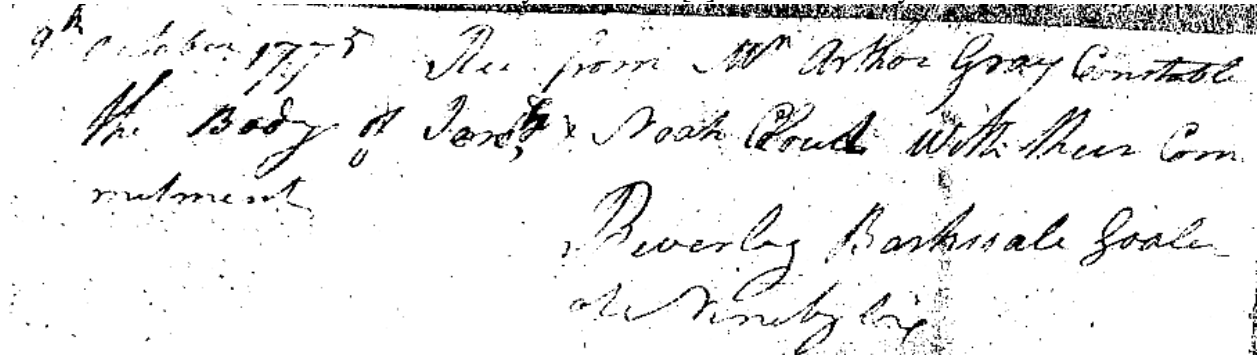 9th October 1775 Rec from Mr Arthor Gray Constable
the Body of & Noah Cloud With their Com
mitment
Beverley Barksdale Goaler
at Ninety Six